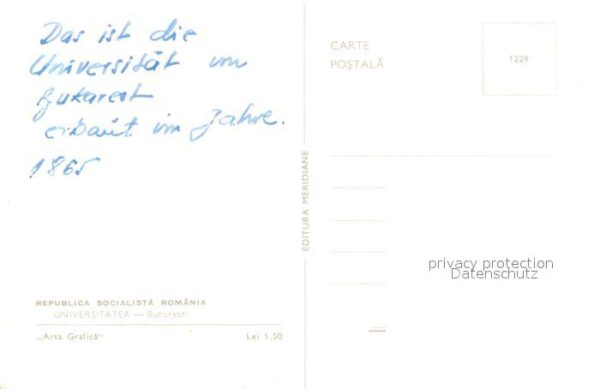 Das ist die
Universität von
Bukarest
erbaut im Jahre.
1865
CARTE
POȘTALĂ
1229
EDITURA MERIDIANE
privacy protection
Datenschutz
REPUBLICA SOCIALISTĂ ROMÂNIA
UNIVERSITATEA — București
„Arta Grafică“
Lei 1,50